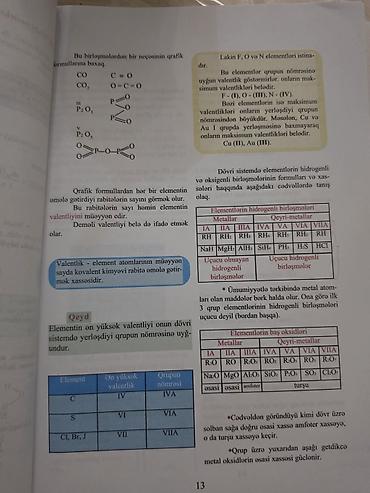 Bu birləşmələrdən bir neçəsinin qrafik
formullarına baxaq.
CO C ≡ O
CO₂ O = C = O
III
P₂O₃
V
P₂O₅
Qrafik formullardan hər bir elementin
əmələ gətirdiyi rabitələrin sayını görmək olur.
Bu rabitələrin sayı həmin elementin
valentliyini müəyyən edir.
Deməli valentliyi belə də ifadə etmək
olar.
Valentlik - element atomlarının müəyyən
sayda kovalent kimyəvi rabitə əmələ gətir-
mək xassəsidir.
Qeyd
Elementin ən yüksək valentliyi onun dövri
sistemdə yerləşdiyi qrupun nömrəsinə uyğ-
undur.
Element Ən yüksək valentlik Qrupun nömrəsi
C IV IVA
S VI VIA
Cl, Br, J VII VIIA
Lakin F, O və N elementləri istisna-
dır.
Bu elementlər qrupun nömrəsinə
uyğun valentlik göstərmirlər. onların mak-
simum valentlikləri belədir.
F - (I), O - (III), N - (IV).
Bəzi elementlərin isə maksimum
valentlikləri onların yerləşdiyi qrupun
nömrəsindən böyükdür. Məsələn, Cu və
Au I qrupda yerləşməsinə baxmayaraq
onların maksimum valentlikləri belədir.
Cu (II), Au (III).
Dövri sistemdə elementlərin hidrogenli
və oksigenli birləşmələrinin formulları və xas-
sələri haqqında aşağıdakı cədvəllərdə tanış
olaq.
Elementlərin hidrogenli birləşmələri
Metallar Qeyri-metallar
IA IIA IIIA IVA VA VIA VIIA
RH RH₂ RH₃ RH₄ RH₃ RH₂ RH
NaH MgH₂ AlH₃ SiH₄ PH₃ H₂S HCl
Uçucu olmayan hidrogenli birləşmələr
Uçucu hidrogenli birləşmələr
* Ümumiyyətlə tərkibində metal atom-
ları olan maddələr bərk halda olur. Ona görə ilk
3 qrup elementlərinin hidrogenli birləşmələri
uçucu deyil (bərdən başqa).
Elementlərin baş oksidləri
Metallar Qeyri-metallar
IA IIA IIIA IVA VA VIA VIIA
R₂O RO R₂O₃ RO₂ R₂O₅ RO₃ R₂O₇
Na₂O MgO Al₂O₃ SiO₂ P₂O₅ SO₃ Cl₂O₇
əsasi əsasi amfoter turşu
*Cədvəldən göründüyü kimi dövr üzrə
soldan sağa doğru əsasi xassə amfoter xassəyə,
o da turşu xassəyə keçir.
*Qrup üzrə yuxarıdan aşağı getdikcə
metal oksidlərin əsasi xassəsi güclənir.
13